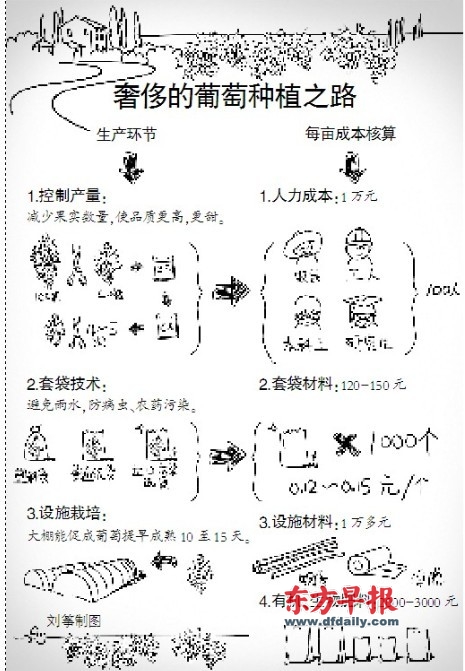 奢侈的葡萄种植之路
生产环节
每亩成本核算
1.控制产量:
减少果实数量,使品质更高,更甜。
1.人力成本:1万元
100人
2.套袋技术:
避免雨水,防病虫、农药污染。
2.套袋材料:120-150元
1000个
0.12~0.15元/个
3.设施栽培:
大棚能促成葡萄提早成熟10至15天。
3.设施材料:1万多元
4.有
00-3000元
刘筝制图
东方早报
www.dfdaily.com